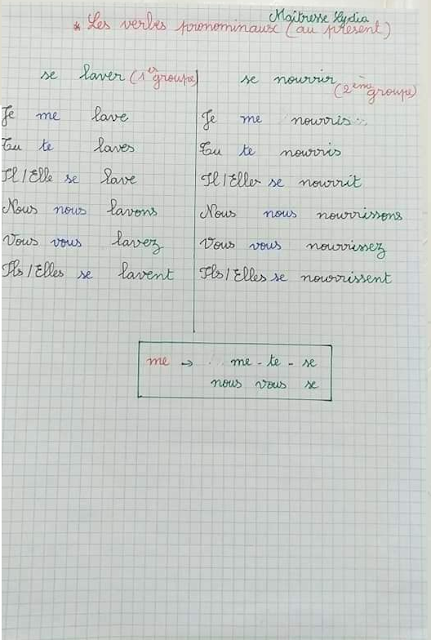 Maîtresse Lydia
* Les verbes pronominaux (au présent)
se laver (1er groupe)
se nourrir (2ème groupe)
Je me lave
Tu te laves
Il/Elle se lave
Nous nous lavons
Vous vous lavez
Ils/Elles se lavent
Je me nourris
Tu te nourris
Il/Elle se nourrit
Nous nous nourrissons
Vous vous nourrissez
Ils/Elles se nourrissent
me → me - te - se
nous vous se